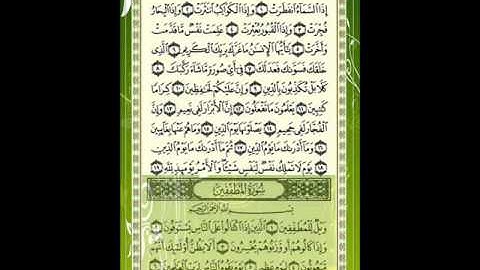 إِذَا ٱلسَّمَآءُ ٱنفَطَرَتْ ١ وَإِذَا ٱلْكَوَاكِبُ ٱنتَثَرَتْ ٢ وَإِذَا ٱلْبِحَارُ
فُجِّرَتْ ٣ وَإِذَا ٱلْقُبُورُ بُعْثِرَتْ ٤ عَلِمَتْ نَفْسٌ مَّا قَدَّمَتْ
وَأَخَّرَتْ ٥ يَٰٓأَيُّهَا ٱلْإِنسَٰنُ مَا غَرَّكَ بِرَبِّكَ ٱلْكَرِيمِ ٦ ٱلَّذِى
خَلَقَكَ فَسَوَّىٰكَ فَعَدَلَكَ ٧ فِىٓ أَىِّ صُورَةٍ مَّا شَآءَ رَكَّبَكَ ٨
كَلَّا بَلْ تُكَذِّبُونَ بِٱلدِّينِ ٩ وَإِنَّ عَلَيْكُمْ لَحَٰفِظِينَ ١٠ كِرَامًا
كَٰتِبِينَ ١١ يَعْلَمُونَ مَا تَفْعَلُونَ ١٢ إِنَّ ٱلْأَبْرَارَ لَفِى نَعِيمٍ ١٣ وَإِنَّ
ٱلْفُجَّارَ لَفِى جَحِيمٍ ١٤ يَصْلَوْنَهَا يَوْمَ ٱلدِّينِ ١٥ وَمَا هُمْ عَنْهَا بِغَآئِبِينَ
١٦ وَمَآ أَدْرَىٰكَ مَا يَوْمُ ٱلدِّينِ ١٧ ثُمَّ مَآ أَدْرَىٰكَ مَا يَوْمُ ٱلدِّينِ
١٨ يَوْمَ لَا تَمْلِكُ نَفْسٌ لِّنَفْسٍ شَيْـًٔا وَٱلْأَمْرُ يَوْمَئِذٍ لِّلَّهِ ١٩
سُورَةُ ٱلْمُطَفِّفِينَ
بِسْمِ ٱللَّهِ ٱلرَّحْمَٰنِ ٱلرَّحِيمِ
وَيْلٌ لِّلْمُطَفِّفِينَ ١ ٱلَّذِينَ إِذَا ٱكْتَالُوا۟ عَلَى ٱلنَّاسِ يَسْتَوْفُونَ ٢
وَإِذَا كَالُوهُمْ أَو وَّزَنُوهُمْ يُخْسِرُونَ ٣ أَلَا يَظُنُّ أُو۟لَٰٓئِكَ أَنَّهُم
مَّبْعُوثُونَ ٤ لِيَوْمٍ عَظِيمٍ ٥ يَوْمَ يَقُومُ ٱلنَّاسُ لِرَبِّ ٱلْعَٰلَمِينَ